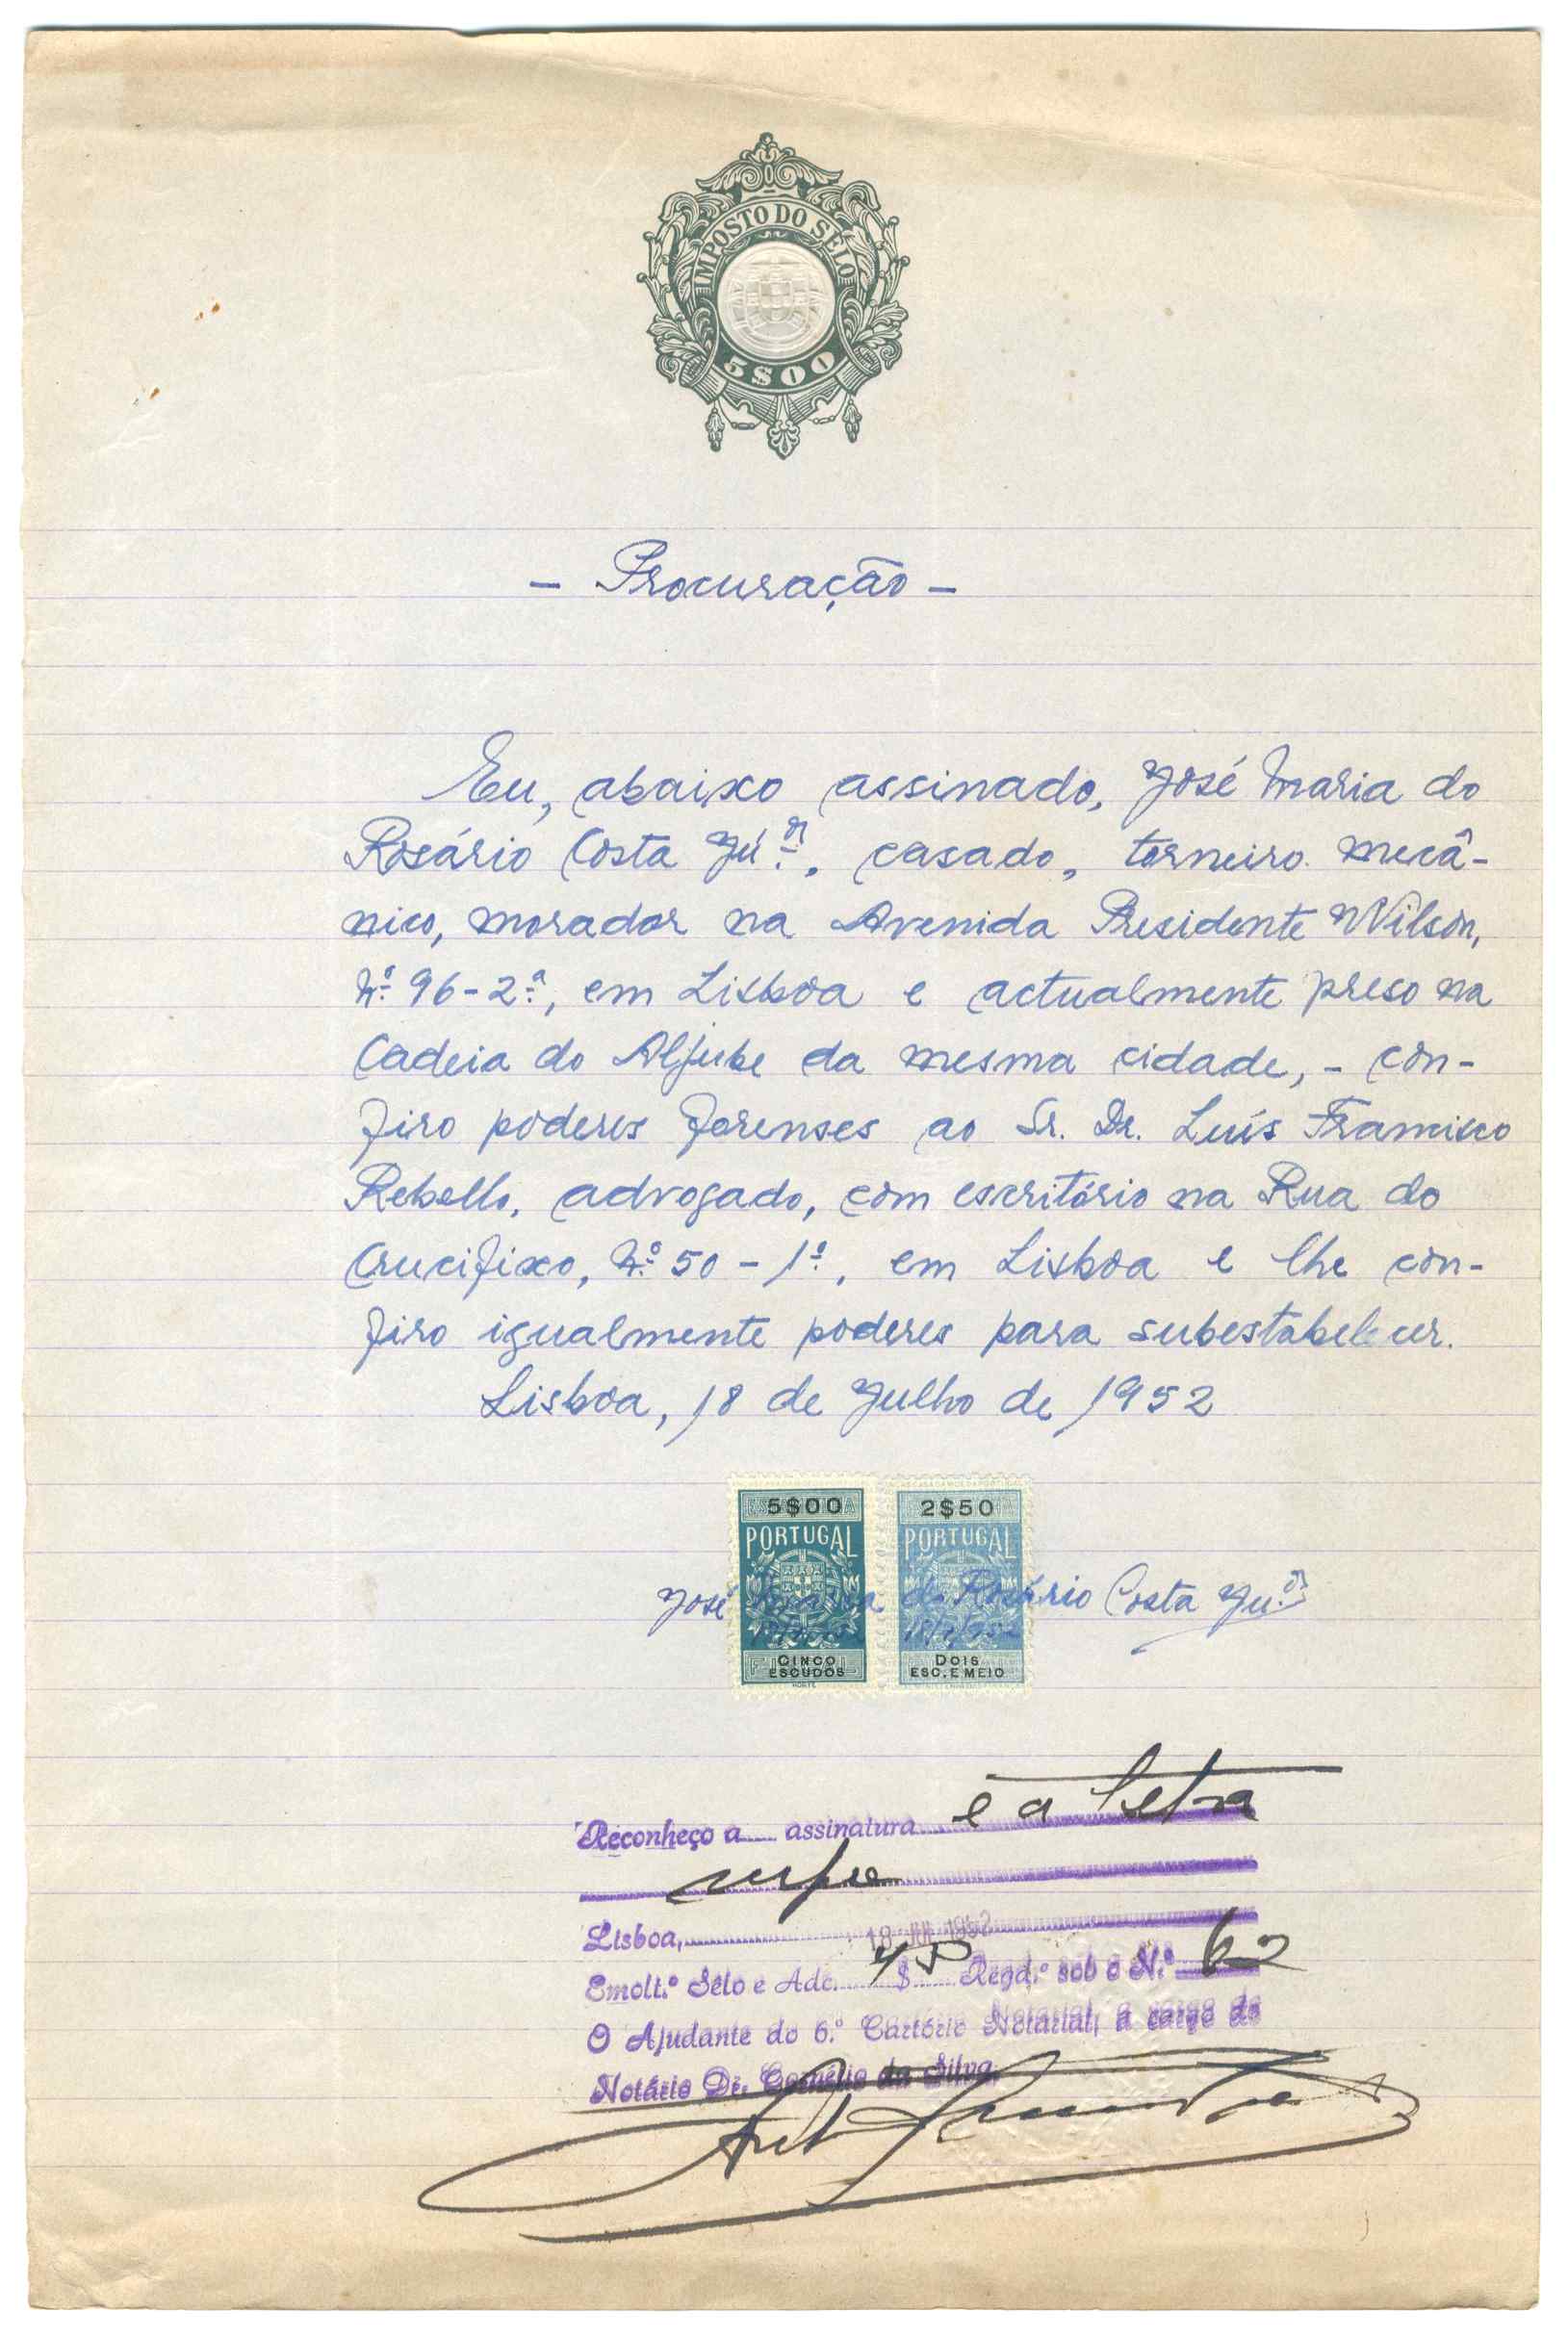 IMPOSTO DO SÊLO
5$00
- Procuração -
Eu, abaixo assinado, José Maria do
Rosário Costa Jú.or, casado, torneiro mecâ-
nico, morador na Avenida Presidente Wilson,
N.º 96-2.º, em Lisboa e actualmente preso na
Cadeia do Aljube da mesma cidade, - con-
firo poderes forenses ao Sr. Dr. Luís Francisco
Rebello, advogado, com escritório na Rua do
Crucifixo, N.º 50 - 1.º, em Lisboa e lhe con-
firo igualmente poderes para subestabelecer.
Lisboa, 18 de Julho de 1952
5$00 2$50
PORTUGAL PORTUGAL
José Maria do Rosário Costa Ju.or
18/7/952 18/7/952
CINCO ESCUDOS DOIS ESC. E MEIO
Reconheço a assinatura e a letra
supra
Lisboa, 18 JUL 1952
Emolt.º Sêlo e Adc. $ Regd.º sob o N.º 62
O Ajudante do 6.º Cartório Notarial, a cargo do
Notário Dr. Cornélio da Silva,